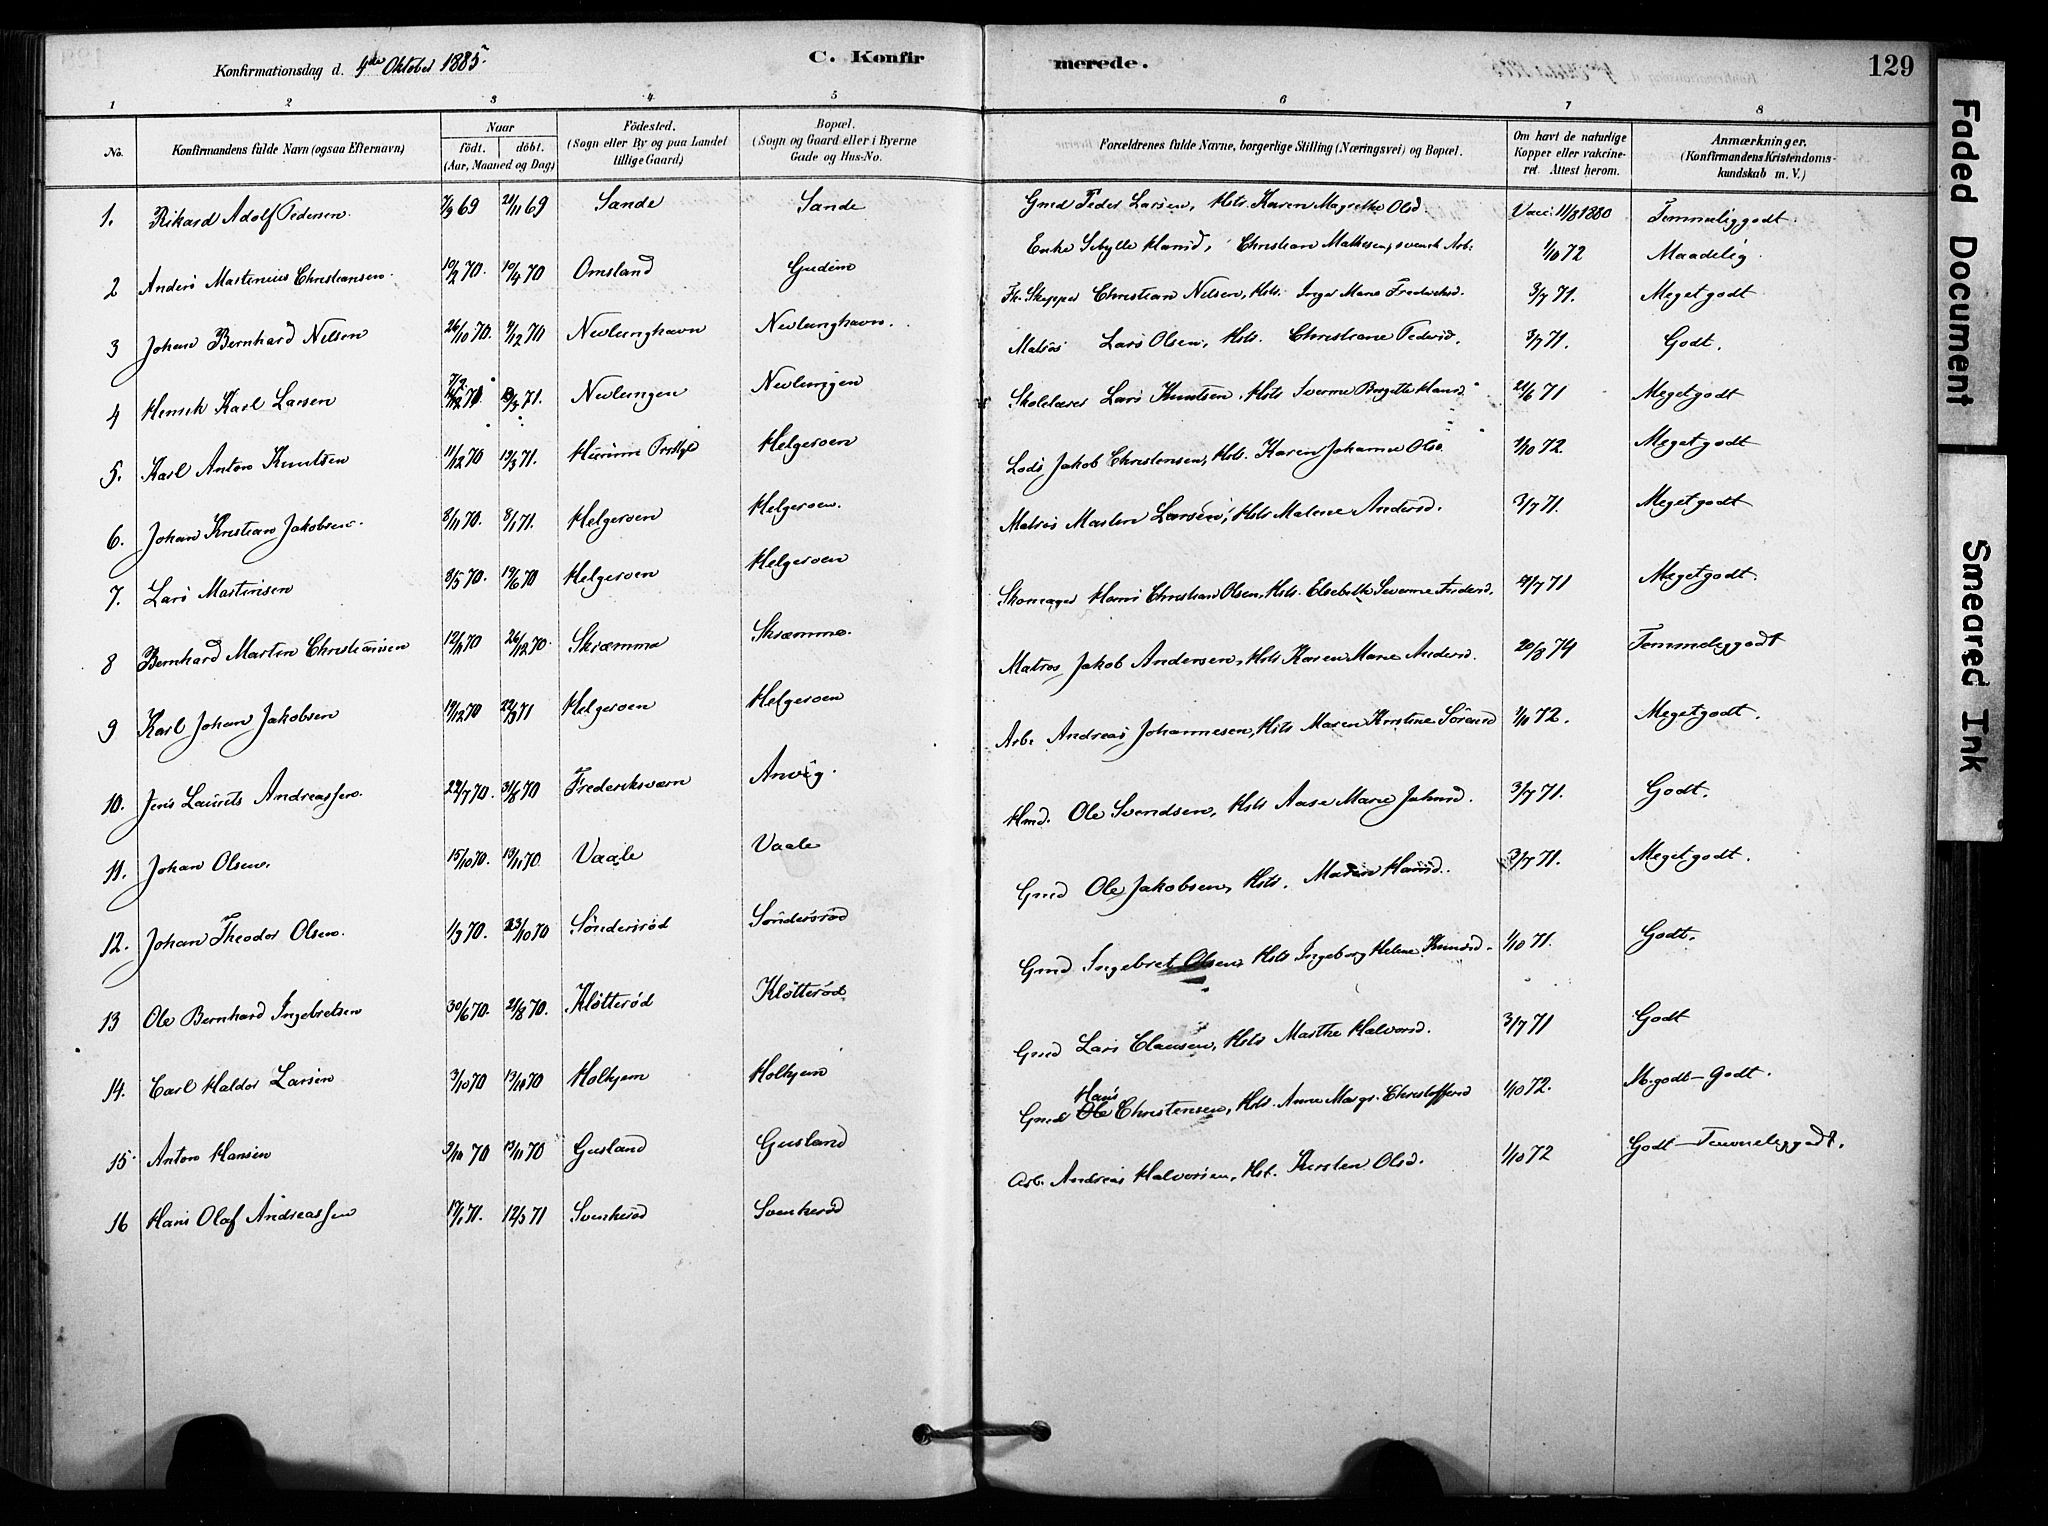 Konfirmationsdag d. 4de Oktober 1885.
C. Konfirmerede.
129
1 2 3 4 5 6 7 8
No.
Konfirmandens fulde Navn (ogsaa Efternavn)
Naar
födt. döbt.
(Aar, Maaned og Dag)
Födested.
(Sogn eller By og paa Landet
tillige Gaard)
Bopæl.
(Sogn og Gaard eller i Byerne
Gade og Hus-No.
Forældrenes fulde Navne, borgerlige Stilling (Næringsvei) og Bopæl.
Om havt de naturlige
Kopper eller vakcine-
ret. Attest herom.
Anmærkninger.
(Konfirmandens Kristendoms-
kundskab m. V.)
1. Rikard Adolf Pedersen. 7/9 69 21/11 69 Sande Sande Gmd Peder Larsen, Hstr. Karen Magrethe Olsd. Vacc. 11/8 1880 Temmeliggodt.
2 Anders Martinius Christiansen. 10/2 70. 10/4 70 Omsland Gudem Enke Sibylle Hansd, Christian Mathesen, svensk Arb. 1/10 72 Maadelig.
3 Johan Bernhard Nilsen 26/10 70. 4/12 70 Nevlunghavn Nevlunghavn. Fh. Skipper Christian Nilsen, Hstr. Inger Marie Frederiksd. 3/7 71. Megetgodt
4 Henrik Karl Larsen 71. Nevlungen Nevlungen Matros Lars Olsen, Hstr. Christiane Pedersd. 3/7 71. Godt.
5. Karl Anton Knutsen 11/12 70 19/3 71. Helgeroen Skolelærer Lars Knutsen, Hstr Severine Birgitte Hansd 21/6 71 Megetgodt
6. Johan Kristian Jakobsen. 8/11 70. 8/1 71. Helgeroen Helgeroen. Lods Jakob Christensen, Hstr. Karen Johanne Olsd 1/10 72. Megetgodt
7. Lars Martinsen 8/5 70. 19/6 70 Helgeroen Helgeroen Matros Martin Larsen, Hstr Malene Andersd. 3/7 71. Megetgodt
8 Bernhard Martin Christiansen 12/11 70 26/12 70. Skræmme Skræmme. Skomager Hans Christian Olsen, Hstr. Elsebethe Severine Andersd. 71 Megetgodt.
9 Karl Johan Jakobsen 19/12 70 22/3 71 Helgeroen Helgeroen Matros Jakob Andersen, Hstr Karen Marie Andersd. 20/8 74 Temmeliggodt
10. Jens Laurits Andreassen. 24/7 70. 31/8 70 Frederiksværn Anvig. Arb. Andreas Johannesen, Hstr Maren Kristine Sörensd 1/10 72. Megetgodt.
11. Johan Olsen. 15/10 70. 13/11 70 Vaale Vaale Hmd. Ole Svendsen, Hstr Aase Marie Johnsd. 3/7 71. Godt.
12. Johan Theodor Olsen. 1/9 70. 23/10 70 Söndersröd Söndersröd Gmd Ole Jakobsen, Hstr. Maren Hansd. 3/7 71. Megetgodt.
13 Ole Bernhard Ingebretsen 30/6 70. 21/8 70. Klötteröd Klötteröd Gmd Ingebret Olsen, Hstr Ingeborg Helene Knudsd. 1/10 71. Godt.
14. Carl Haldor Larsen 3/10 70 13/11 70 Holhjem Holhjem Gmd Lars Clausen, Hstr Marthe Halvorsd. 3/7 71 Godt
15. Anton Hansen 3/10 70 13/11 70 Gusland Gusland Gmd Ole Hans Christensen, Hstr. Anne Margr. Christoffersd 1/10 72. M.godt–Godt.
16 Hans Olaf Andreassen 17/1 71. 12/3 71 Svenkeröd Svenkeröd Arb. Andreas Halvorsen, Hst. Kirsten Olsd. 1/10 72 Godt–Temmeliggodt.
Faded Document
Smeared Ink